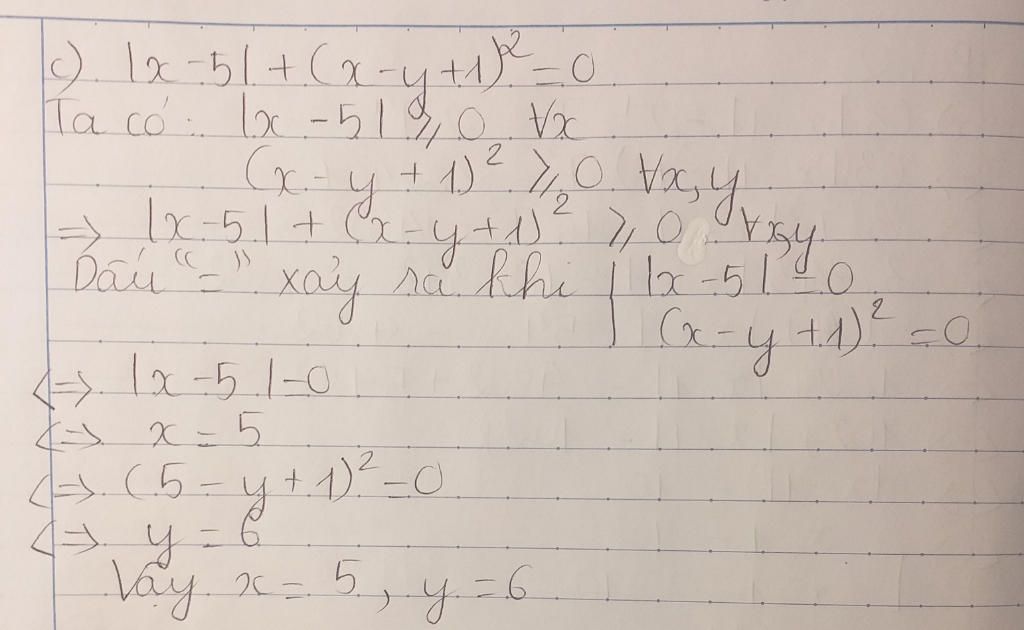 c) |x-5| + (x-y+1)² = 0
Ta có: |x-5| ⩾ 0 ∀x
(x-y+1)² ⩾ 0 ∀x,y
=> |x-5| + (x-y+1)² ⩾ 0 ∀x,y
Dấu "=" xảy ra khi { |x-5| = 0
(x-y+1)² = 0
<=> |x-5| = 0
<=> x = 5
<=> (5-y+1)² = 0
<=> y = 6
Vậy x = 5, y = 6